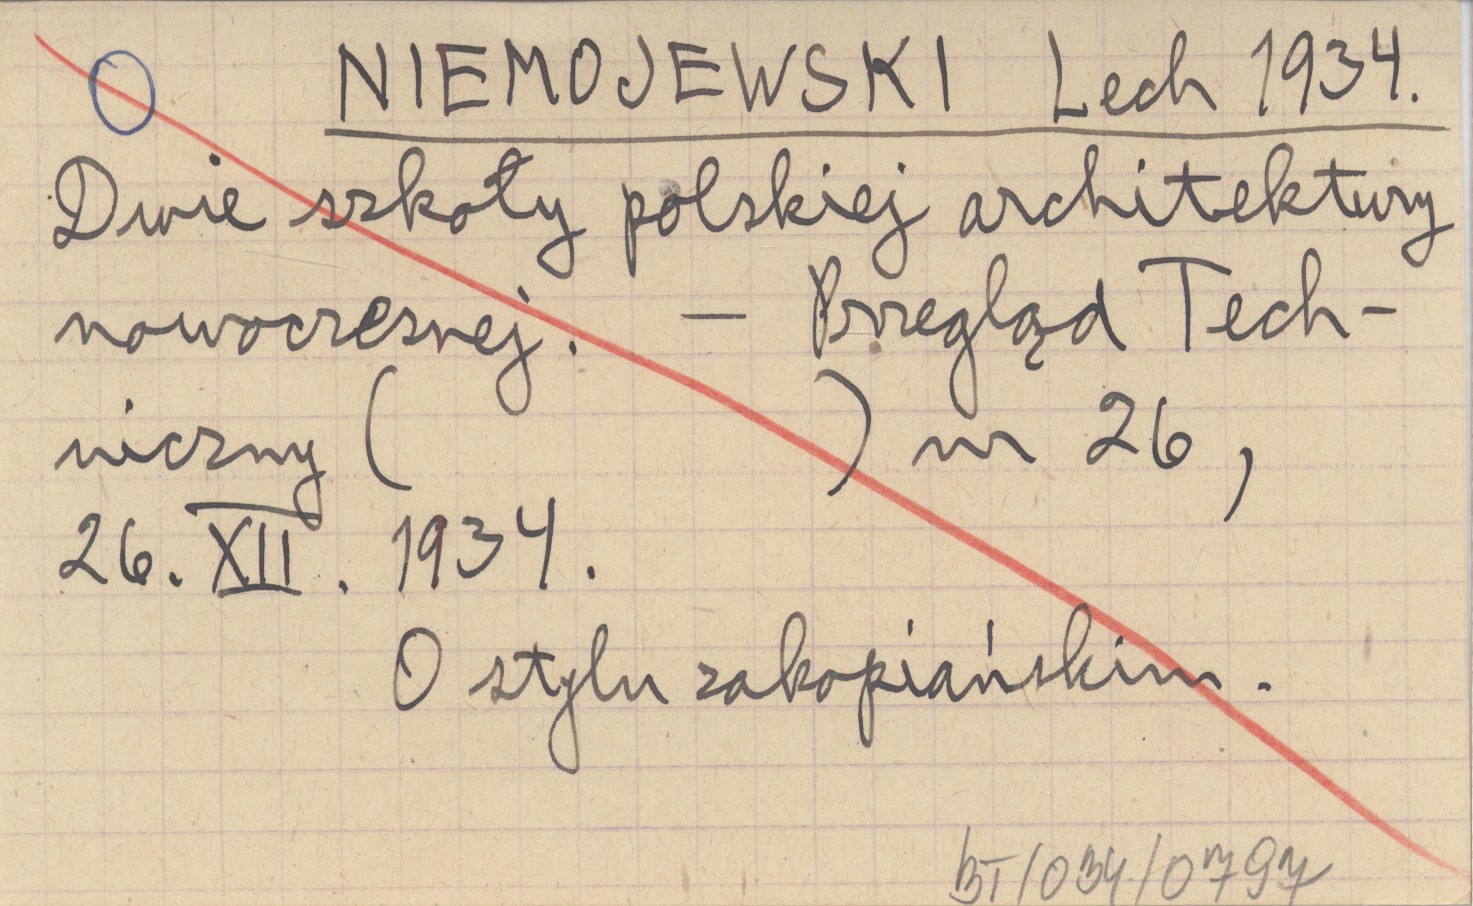 NIEMOJEWSKI Lech 1934.
Dwie szkoły polskiej architektury
nowoczesnej. – Przegląd Tech-
niczny ( ) nr 26,
26. XII. 1934.
O stylu zakopiańskim.
BT/034/0797